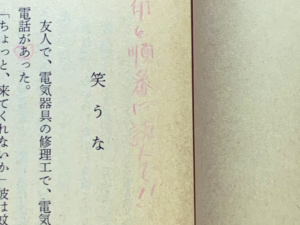 順番に
笑うな
友人で、電気器具の修理工で、電気
電話があった。
「ちょっと、来てくれないか」彼は蚊